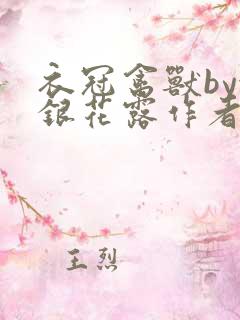 衣冠禽獸by
銀花露作者
王烈